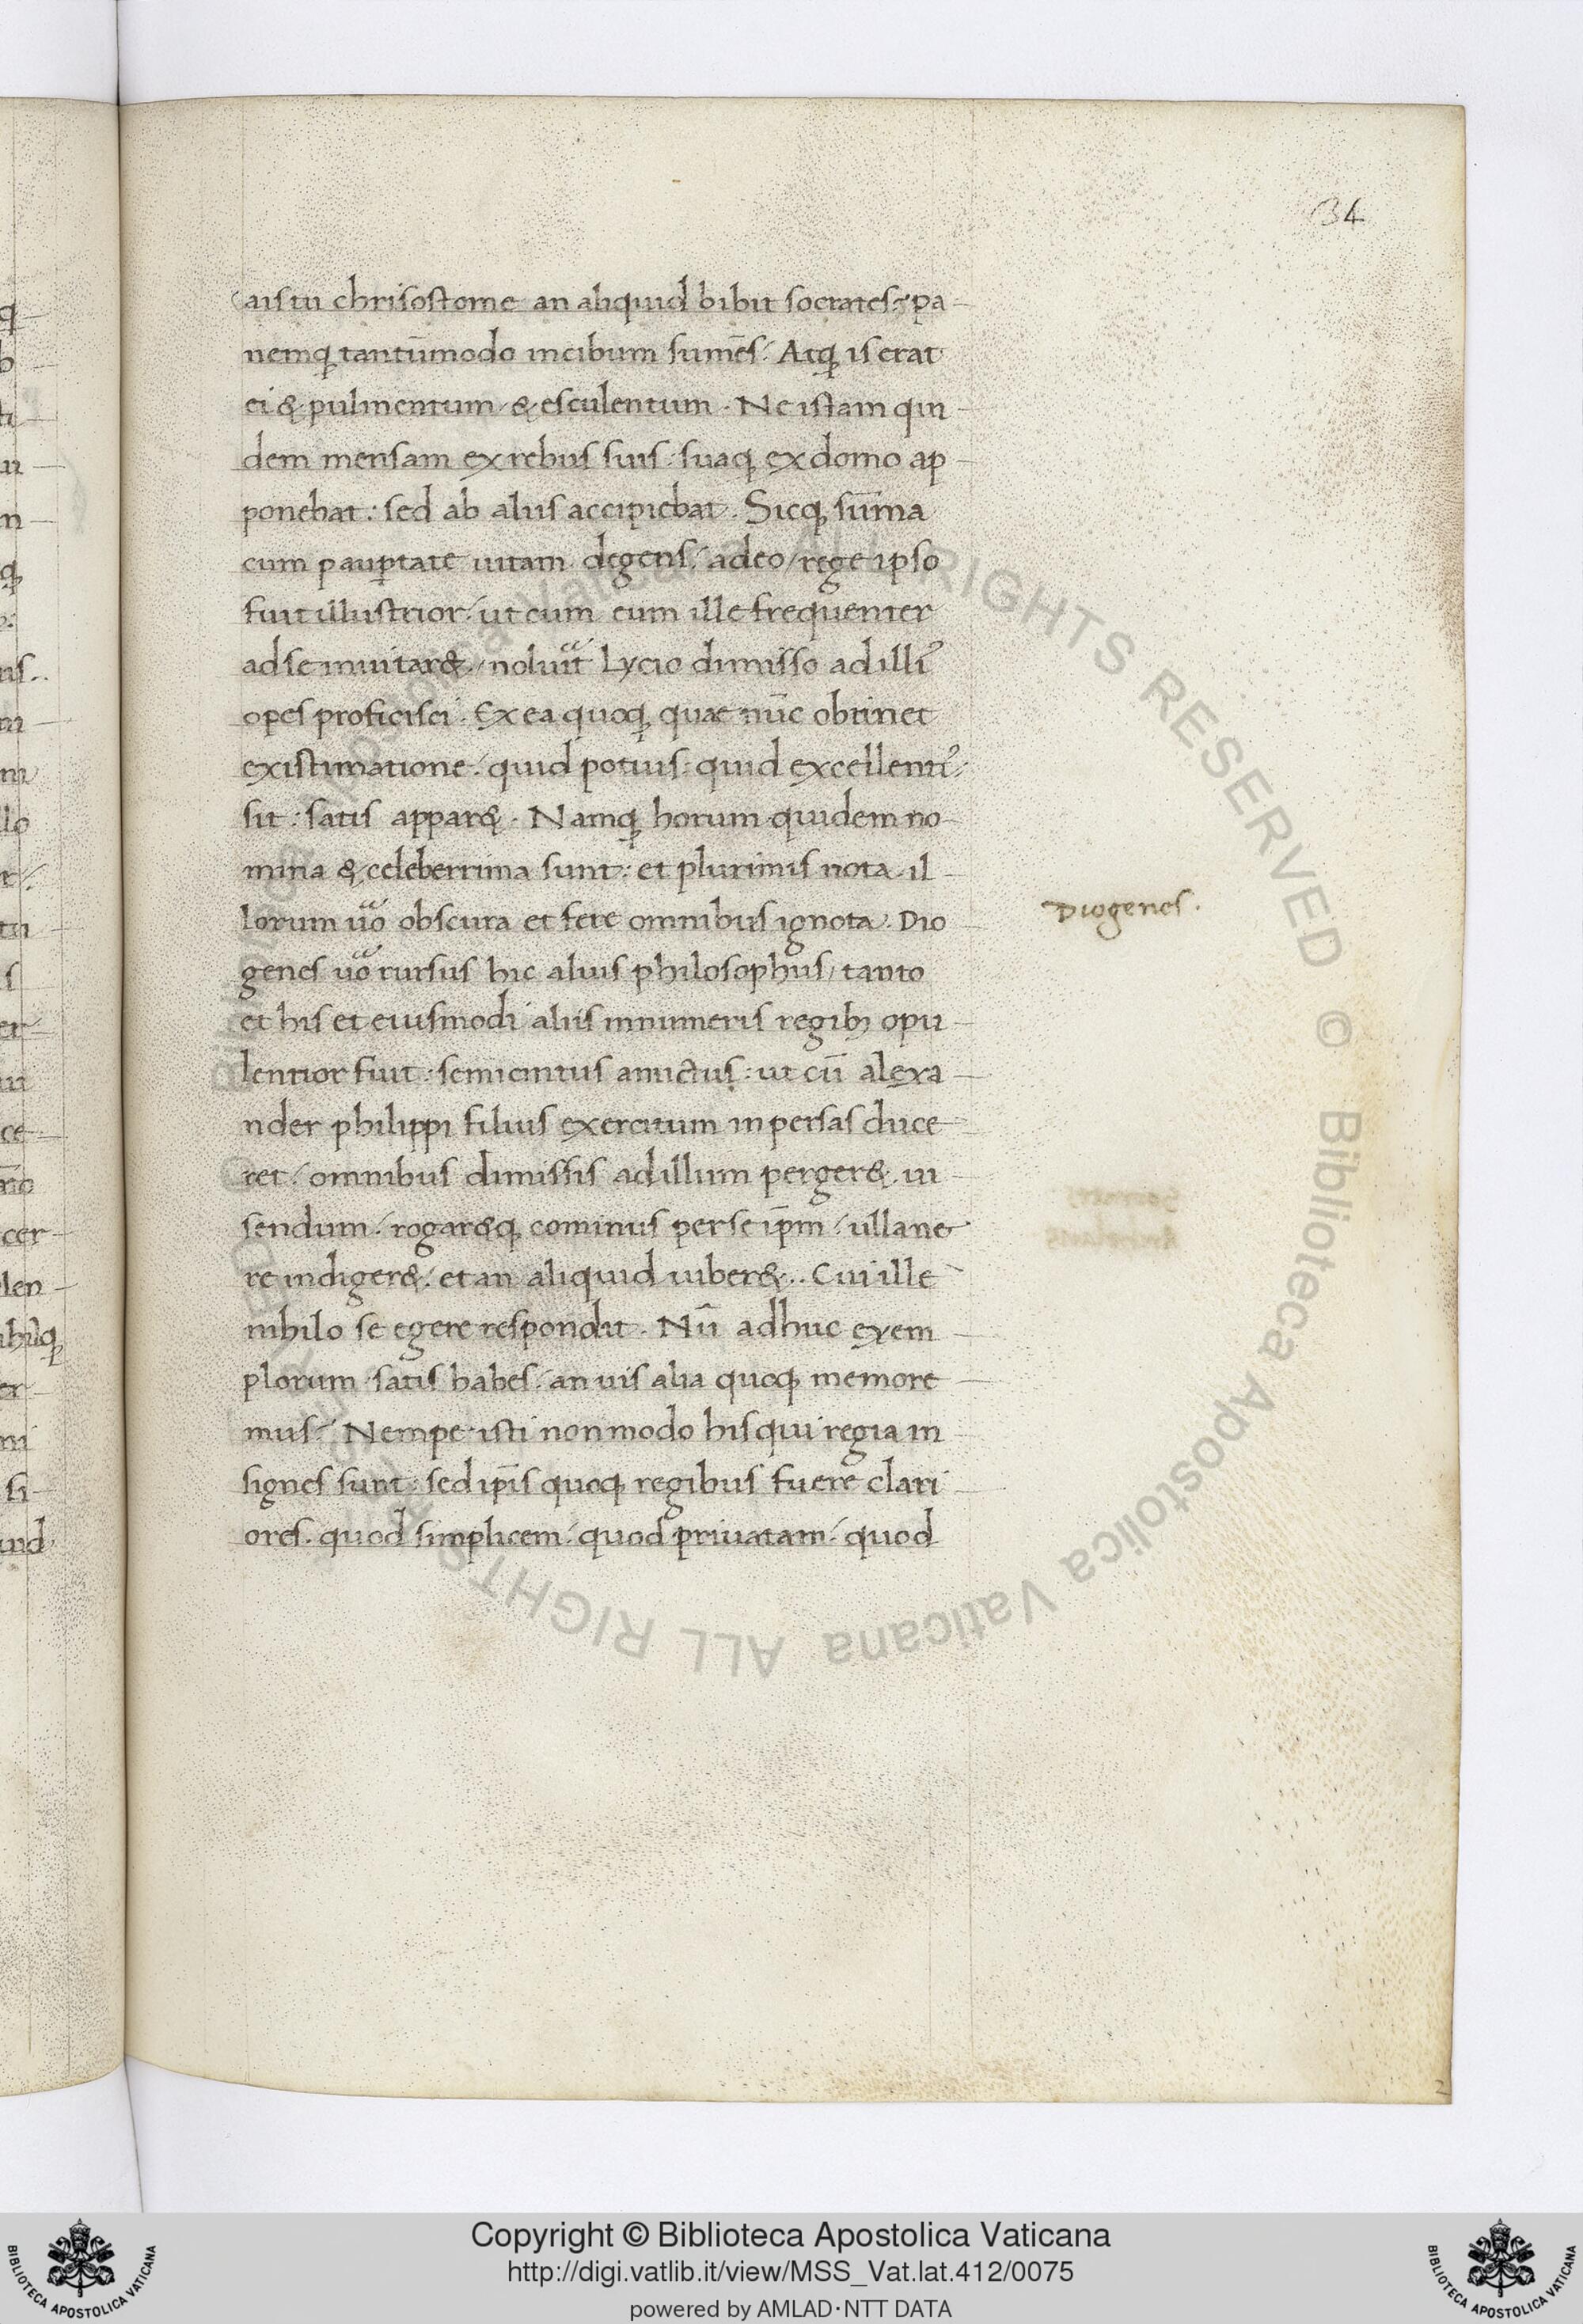 34
aistu chrisostome an aliquid bibit socrates? pa-
nemq; tantūmodo incibum sumēs. Atq; is erat
ei & pulmentum & esculentum. Ne istam qui-
dem mensam ex rebus suis. suaq; ex domo ap-
ponebat: sed ab aliis accipiebat. Sicq; sūma
cum paup̲tate uitam degens. adeo rege ipso
fuit illustrior. ut cum eum ille frequenter
ad se inuitar&. noluit Lycio dimisso ad illi᾿
opes proficisci. Ex ea quoq; quae nūc obtinet
existimatione. quid potius. quid excellenti᾿
sit: satis appar&. Namq; horum quidem no-
mina & celeberrima sunt: et plurimis nota. il-
lorum uo obscura et fere omnibus ignota. Dio
Diogenes.
genes uo rursus hic alius philosophus, tanto
et his et eiusmodi aliis innumeris regib; opu-
lentior fuit: semicintus amictus: ut cū alexa-
nder philippi filius exercitum in persas duce-
ret. omnibus dimissis ad illum perger& ui-
sendum. rogar&q; cominus per se ip̄m. ullane
re indiger&. et an aliquid iuber&. Cui ille
nihilo se egere respondit. Nū adhuc exem-
plorum satis habes. an uis alia quoq; memore-
mus? Nempe isti non modo his qui regia in-
signes sunt: sed ip̄is quoq; regibus fuere clari
ores. quod simplicem. quod priuatam. quod
Copyright © Biblioteca Apostolica Vaticana
http://digi.vatlib.it/view/MSS_Vat.lat.412/0075
powered by AMLAD·NTT DATA